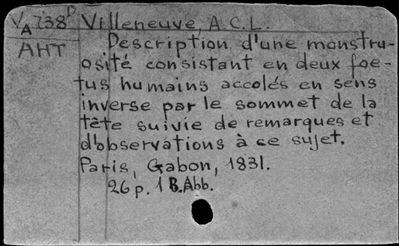 VA 738ᴰ Villeneuve, A.C.L.
AHT Description d'une monstru-
osité consistant en deux foe-
tus humains accolés en sens
inverse par le sommet de la
tête suivie de remarques et
d'observations à ce sujet.
Paris, Gabon, 1831.
26 p. 1 B. Abb.